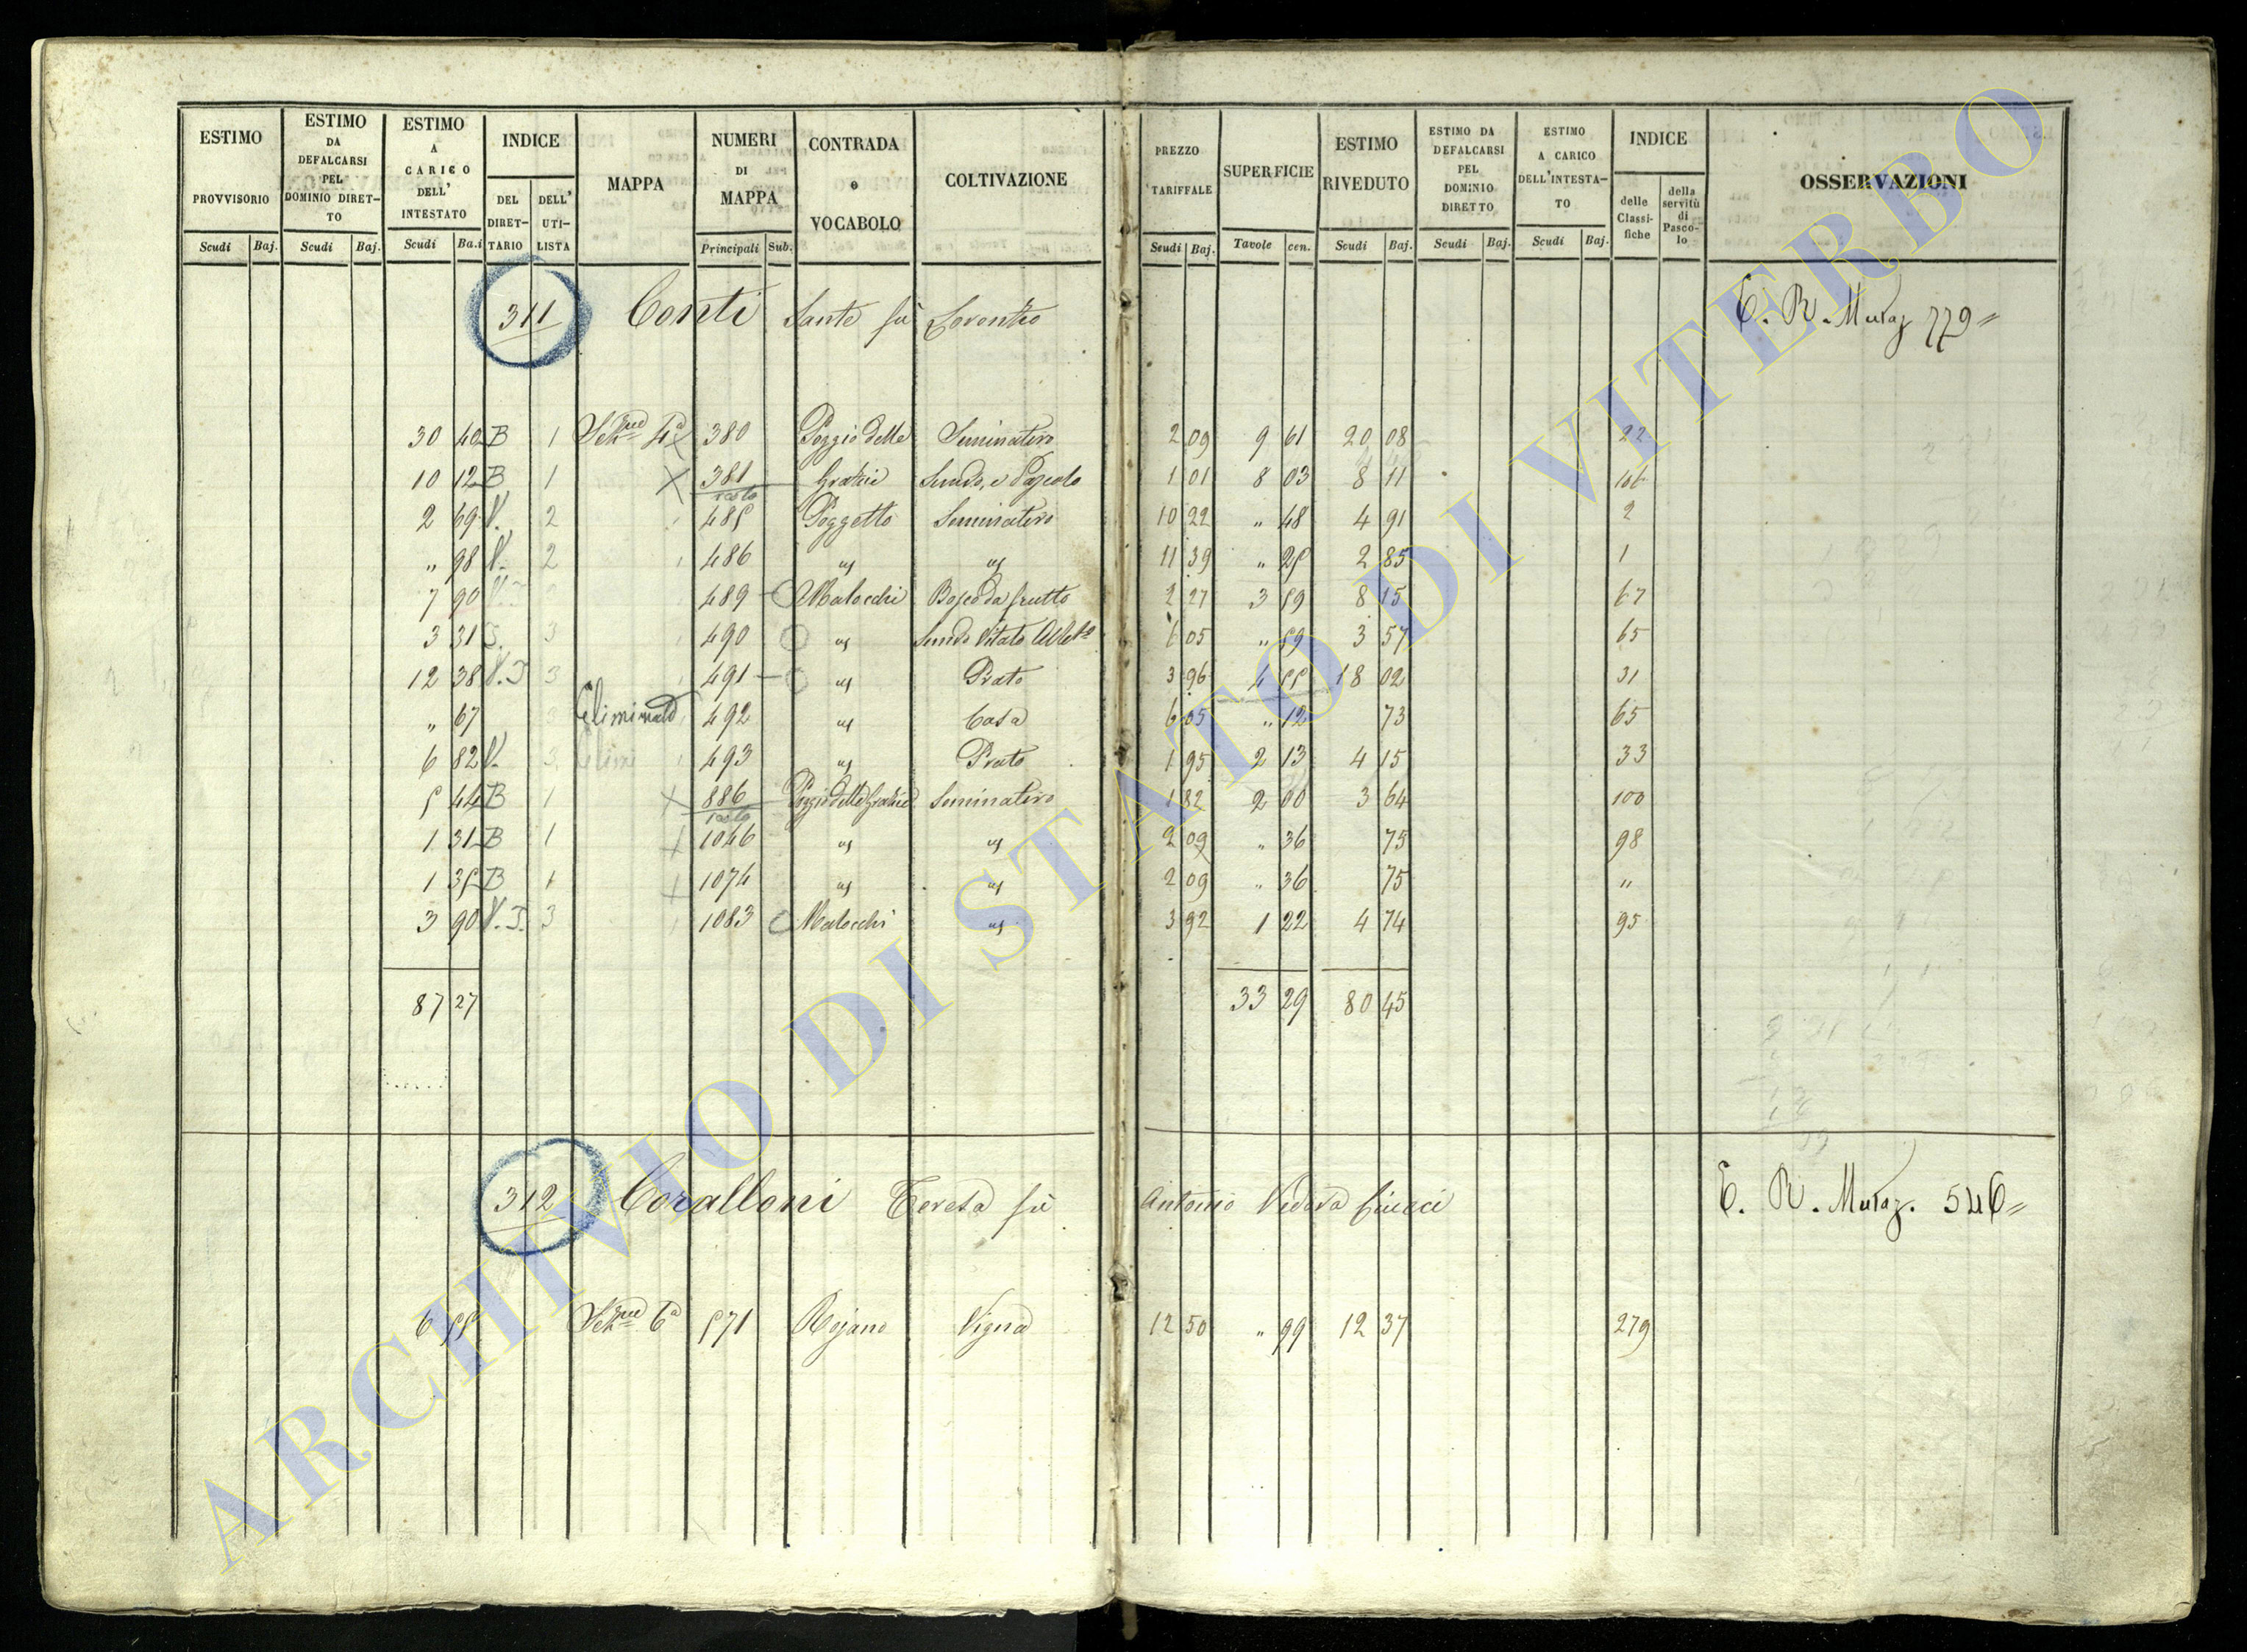 ESTIMO PROVVISORIO Scudi Baj.
ESTIMO DA DEFALCARSI PEL DOMINIO DIRET- TO Scudi Baj.
ESTIMO A CARICO DELL' INTESTATO Scudi Ba.i
INDICE DEL DIRET- TARIO DELL' UTI- LISTA
MAPPA
NUMERI DI MAPPA Principali Sub.
CONTRADA e VOCABOLO
COLTIVAZIONE
PREZZO TARIFFALE Scudi Baj.
SUPERFICIE Tavole cen.
ESTIMO RIVEDUTO Scudi Baj.
ESTIMO DA DEFALCARSI PEL DOMINIO DIRETTO Scudi Baj.
ESTIMO A CARICO DELL'INTESTA- TO Scudi Baj.
INDICE delle Classi- fiche della servitù di Pasco- lo
OSSERVAZIONI
311 Conti Sante fù Lorenzo C. R. Muraz 779=
30 40 B 1 Sezne 4a 380 Poggio delle Seminativo 2 09 9 61 20 08 22
10 12 B 1 X 381 resto Grazie Semvo, e Pascolo 1 01 8 03 8 11 106
2 69 V. 2 485 Poggetto Seminativo 10 22 " 48 4 91 2
" 98 V. 2 486 us us 11 39 " 25 2 85 1
7 90 489 Malocchi Bosco da frutto 2 27 3 59 8 15 67
3 31 3 490 us Semvo Vitato Albto 6 05 " 59 3 57 65
12 38 V. 3 491 us Prato 3 96 4 55 18 02 31
" 67 Eliminato 492 us Casa 6 05 " 12 73 65
6 82 V. 3 493 us Prato 1 95 2 13 4 15 33
5 44 B 1 X 886 resto Poggio delle Grazie Seminativo 1 82 2 00 3 64 100
1 31 B 1 X 1046 us us 2 09 " 36 75 98
1 35 B 1 X 1074 us us 2 09 " 36 75 "
3 90 3 1083 Malocchi us 3 92 1 22 4 74 95
87 27 33 29 80 45
312 Coralloni Teresa fù Antonio Vedova C. R. Muraz. 546=
6 55 Sezne 6a 571 Rojano Vigna 12 50 " 99 12 37 279
ARCHIVIO DI STATO DI VITERBO